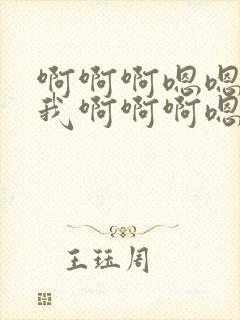 啊啊啊嗯嗯
我啊啊啊嗯
王珏周